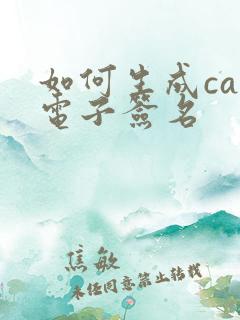 如何生成ca
電子簽名
焦敏
未经同意禁止转载